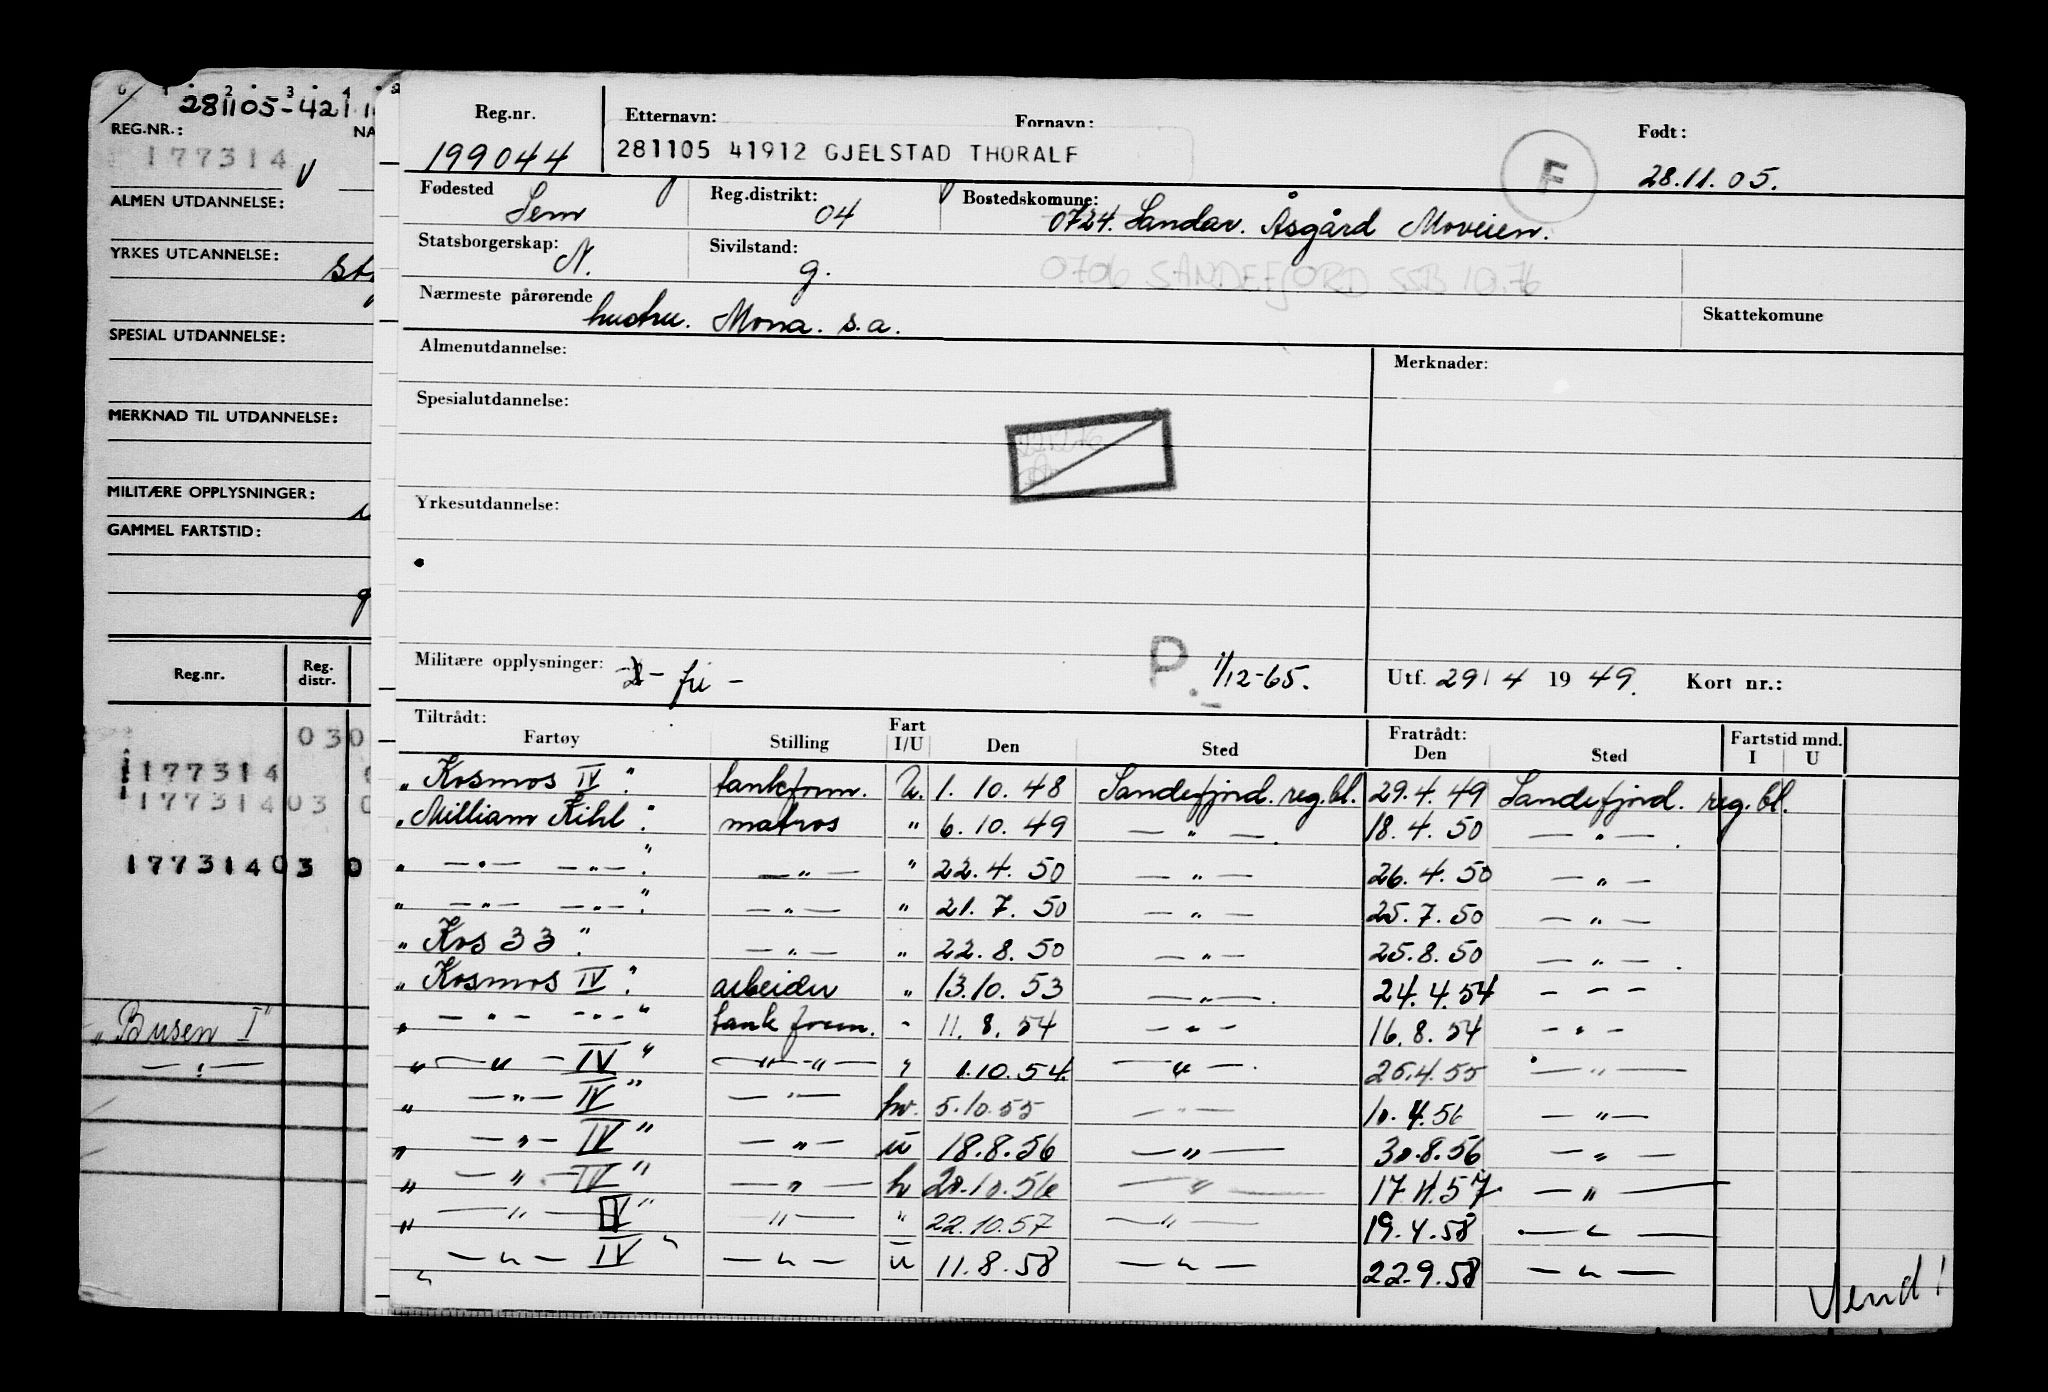 281105-421 1
REG.NR.: NA
177314 V
ALMEN UTDANNELSE:
YRKES UTDANNELSE:
SPESIAL UTDANNELSE:
MERKNAD TIL UTDANNELSE:
MILITÆRE OPPLYSNINGER:
GAMMEL FARTSTID:
Reg.nr. Reg. distr.
030
177314
17731403
17731403 0
"Busen I"
— " —
Reg.nr. Etternavn: Fornavn: Født:
199044 281105 41912 GJELSTAD THORALF F 28.11.05.
Fødested Reg.distrikt: Bostedskomune:
Sem 04 0724. Sandar. Åsgård Moveien.
Statsborgerskap: Sivilstand:
N. g. 0706 SANDEFJORD SSB 10.76
Nærmeste pårørende hustru. Mona. s.a. Skattekomune
Almenutdannelse: Merknader:
Spesialutdannelse:
Yrkesutdannelse:
Militære opplysninger: - fri - P. 1/12-65. Utf. 29/4 1949. Kort nr.:
Tiltrådt: Fartøy Stilling Fart I/U Den Sted Fratrådt: Den Sted Fartstid mnd. I U
"Kosmos IV" tankform. U. 1.10.48 Sandefjord. reg.bl. 29.4.49 Sandefjord. reg.bl.
"Milliam Kihl" matros " 6.10.49 — " — 18.4.50 — " —
" — " — — " — " — " — " 22.4.50 — " — 26.4.50 — " —
" — " — — " — " — " — " 21.7.50 — " — 25.7.50 — " —
"Kos 33" — " — " 22.8.50 — " — 25.8.50 — " —
"Kosmos IV" arbeider " 13.10.53 — " — 24.4.54 — " —
" — " — — " — " tank form. " 11.8.54 — " — 16.8.54 — " —
" — " — IV" — " — " 1.10.54. — " — 26.4.55 — " —
" — " — IV" — " — hv. 5.10.55 — " — 10.4.56 — " —
" — " — IV" — " — u 18.8.56 — " — 30.8.56 — " —
" — " — IV" — " — hv 20.10.56 — " — 17.4.57 — " —
" — " — V" — " — " 22.10.57 — " — 19.4.58 — " —
" — " — IV" — " — u 11.8.58 — " — 22.9.58 — " —
Vend!